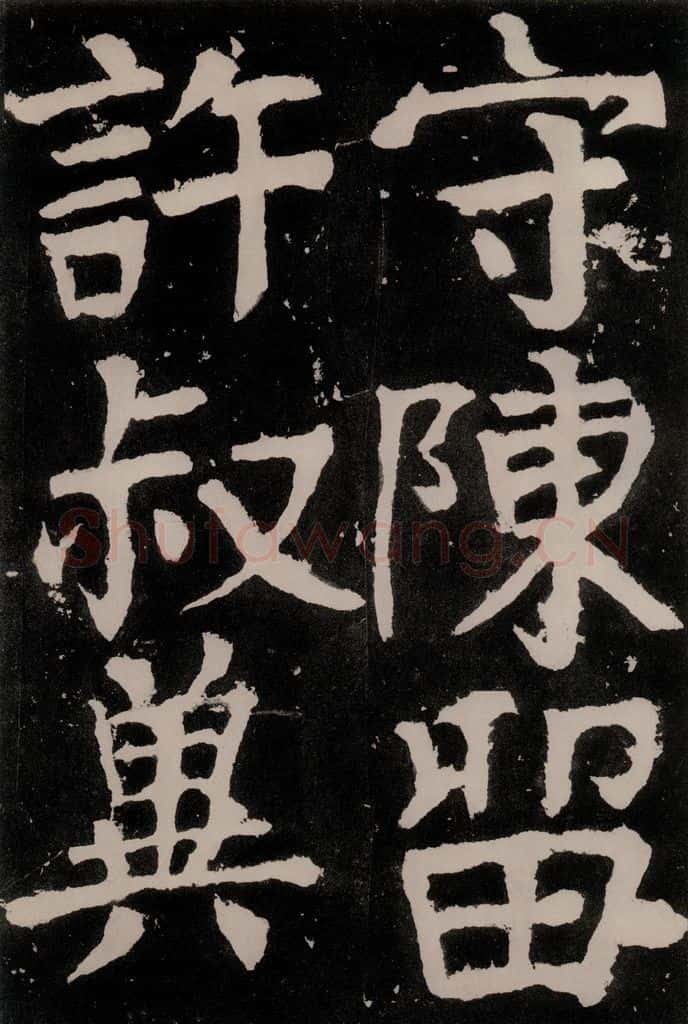 守陳留
許叔典
Shufawang.CN